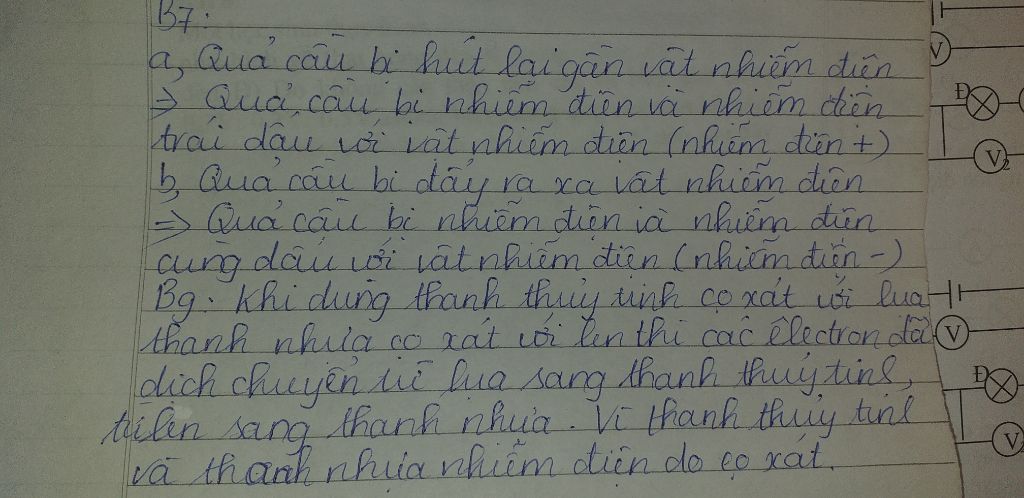 B7:
a, Quả cầu bị hút lại gần vật nhiễm điện
=> Quả cầu bị nhiễm điện và nhiễm điện
trái dấu với vật nhiễm điện (nhiễm điện +)
b, Quả cầu bị đẩy ra xa vật nhiễm điện
=> Quả cầu bị nhiễm điện và nhiễm điện
cùng dấu với vật nhiễm điện (nhiễm điện -)
B9: Khi dùng thanh thuỷ tinh cọ xát với lụa
thanh nhựa cọ xát với len thì các êlectron đã
dịch chuyển từ lụa sang thanh thuỷ tinh,
từ len sang thanh nhựa. Vì thanh thuỷ tinh
và thanh nhựa nhiễm điện do cọ xát.
V
Đ
V2
V
Đ
V